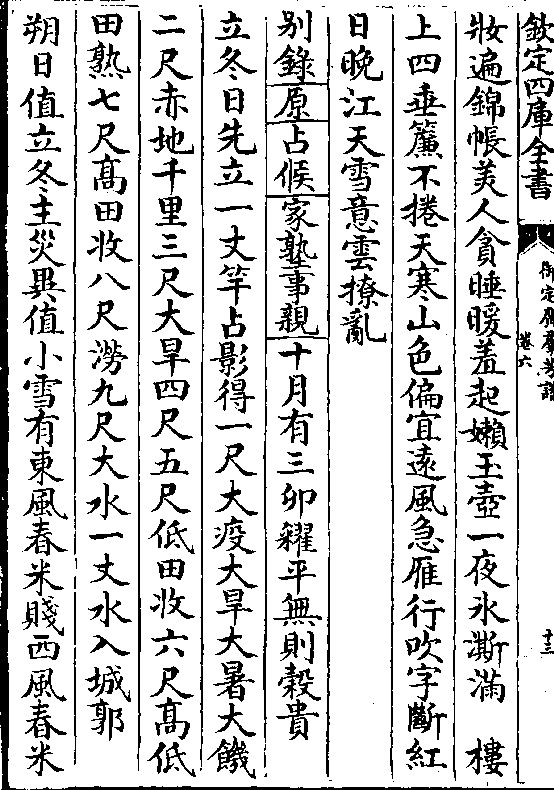 欽定四庫全書
御定廣羣芳譜
卷六
十三
妝遍錦帳美人貪睡暖羞起嬾玉壺一夜氷澌滿　樓
上四垂簾不捲天寒山色偏宜遠風急雁行吹字斷紅
日晚江天雪意雲撩亂
别錄原占候家塾事親十月有三卯糴平無則穀貴
立冬日先立一丈竿占影得一尺大疫大旱大暑大饑
二尺赤地千里三尺大旱四尺五尺低田收六尺高低
田熟七尺髙田收八尺澇九尺大水一丈水入城郭
朔日值立冬主災異值小雪有東風春米賤西風春米